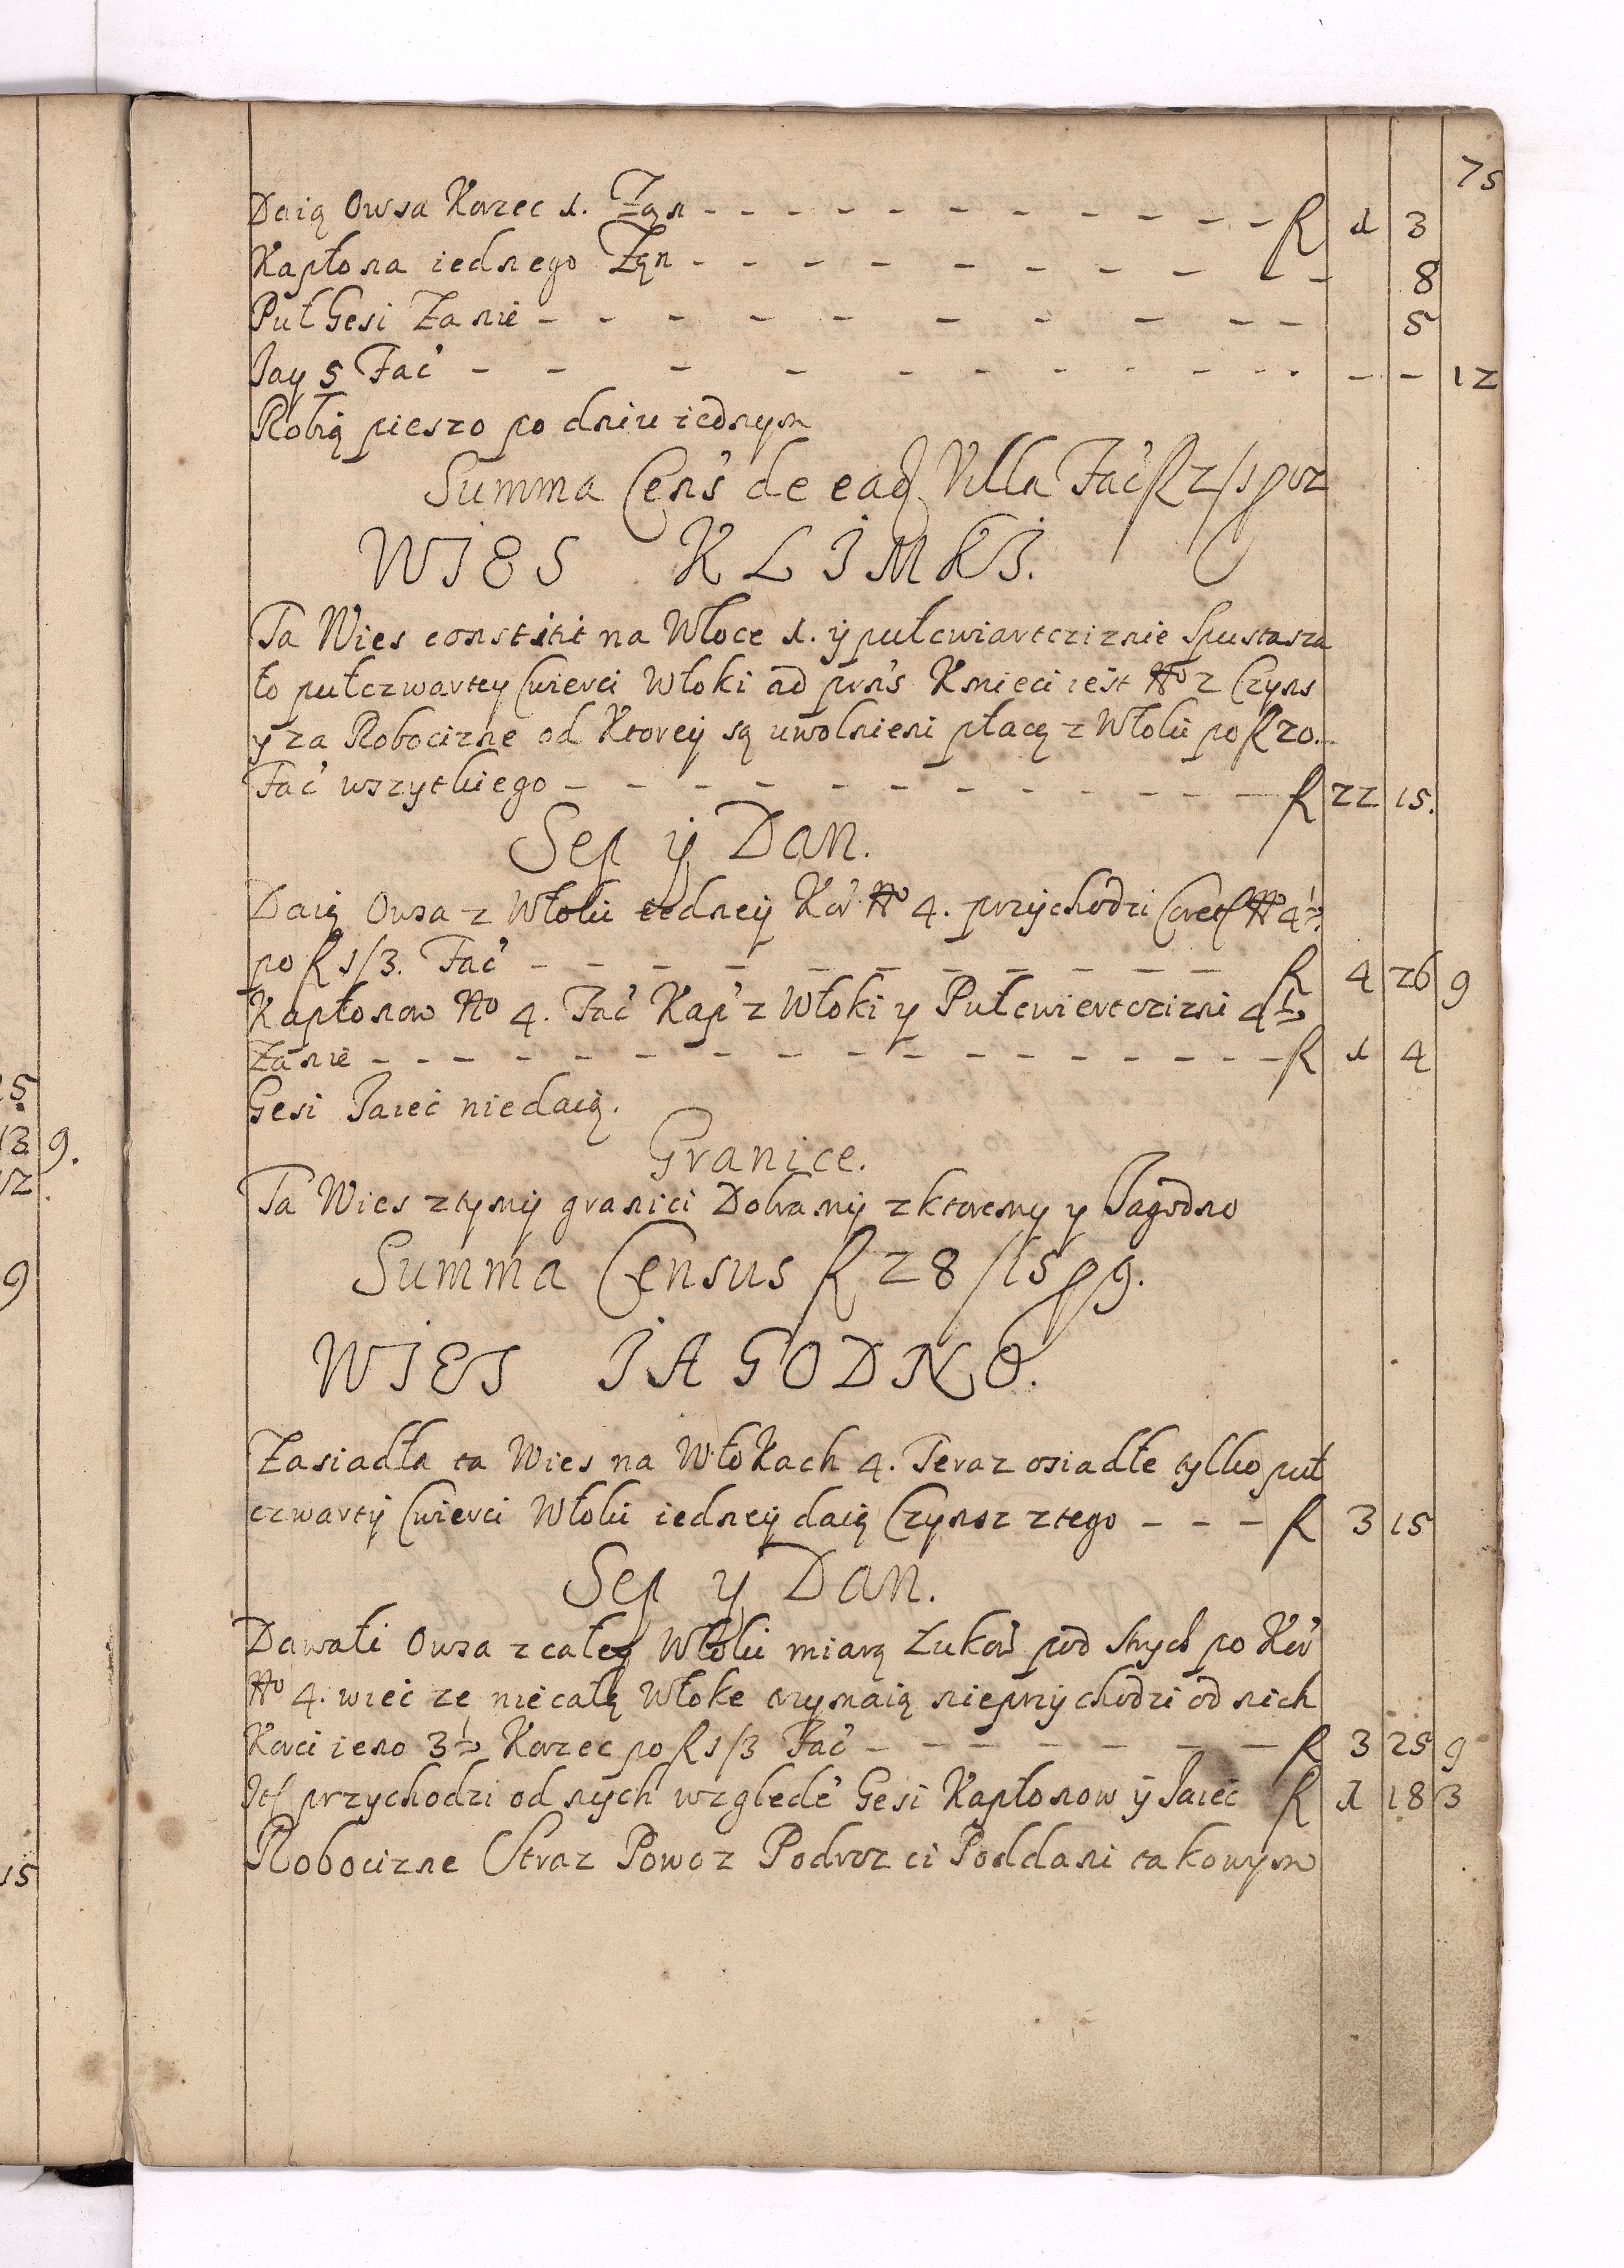 75
Daią Owsa Korzec 1. Zań - - - - - - - - - - - - f 1 3
Kapłona iednego Zań - - - - - - - - - - - 8
Puł Gesi Za nie - - - - - - - - - - 5
Jay 5 Fać - - - - - - - - - - - - - 12
Robią pieszo po dniu iednym
Summa Cens de ead Villa Fać f 2/1
WIES KLIMKI.
Ta Wies constitit na Włoce 1. ÿ pułcwiartcziznie Spustosza
ło pułczwartey Cwierci Włoki ad prns Kmieci iest No 2 Czyns
y za Robocizne od Ktorey są uwolnieni płacą z Włoki po f 20.
Fać wszytkiego - - - - - - - - - - - f 22 15.
Sep ÿ Dan.
Daią Owsa z Włoki iedney Kor No 4. przychodzi Coret No 4½
po f 1/3. Fać - - - - - - - - - - f 4 26 9
Kapłonow No 4. Fać Kap z Włoki y Pułcwiertczizni 4½
Za nie - - - - - - - - - - - - - - - - f 1 4
Gesi Jaiec niedaią.
Granice.
Ta Wies z tymÿ granici Dobramÿ z ktoremy y Jagodno
Summa Census f 28/15 9.
WIES IAGODNO.
Zasiadła ta Wies na Włokach 4. Teraz osiadłe tylko puł
czwartÿ Cwierci Włoki iedney daią Czynsz z tego - - - f 3 15
Sep y Dan.
Dawali Owsa z całey Włoki miarą Łukow pod strych po Kor
No 4. wiec ze niecałą Włoke trzymaią nieprzÿchodzi od nich
Korci ieno 3½ Korzec po f 1/3 Fać - - - - - - - f 3 25 9
It przychodzi od nych wzglede Gesi Kapłonow ÿ Jaiec f 1 18 3
Robocizne Straz Powoz Podroz ci Poddani takowym
15
13 9.
12.
9
15